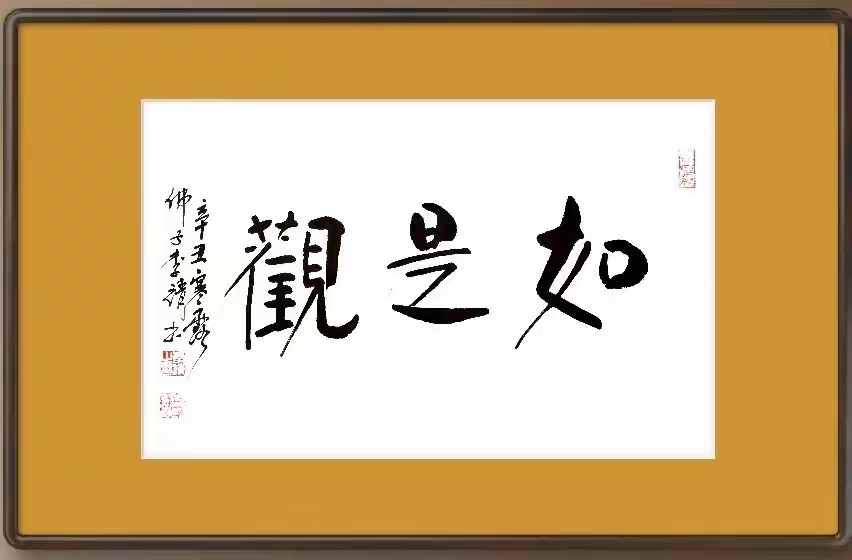 如是觀
辛丑寒露
佛子李靖书